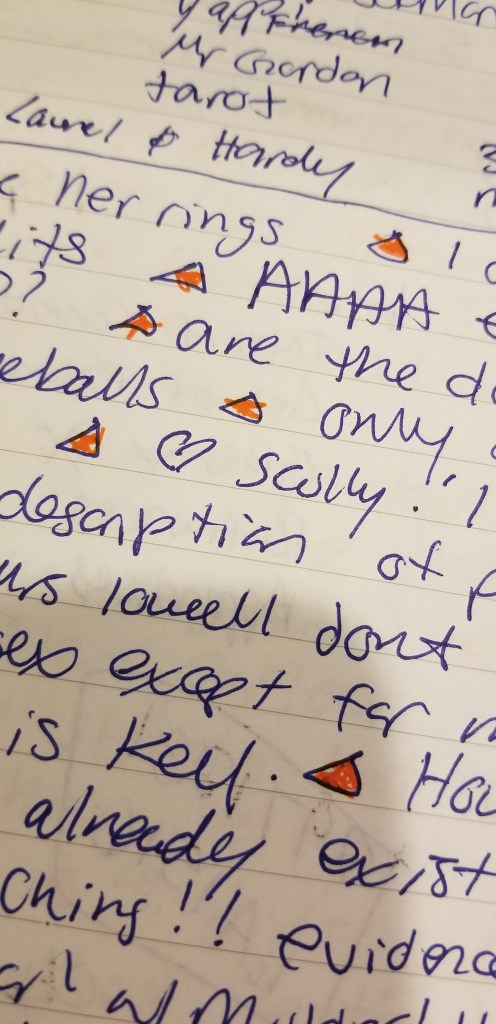 Mr Gordon
tarot
Laurel & Hardy
her rings
AAAA
D??
are the d
eballs only
♡ scully!! I
description of
lowell dont
sex except for
is key. Ho
already exist
ching!! evidenc
w/ Mulder